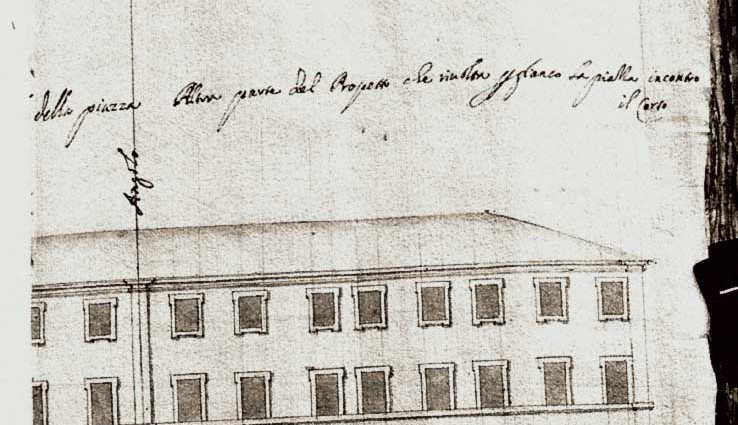 della piazza Altra parte del Prospetto che rivolta per fianco la pialla incontro
il Corso
Angolo